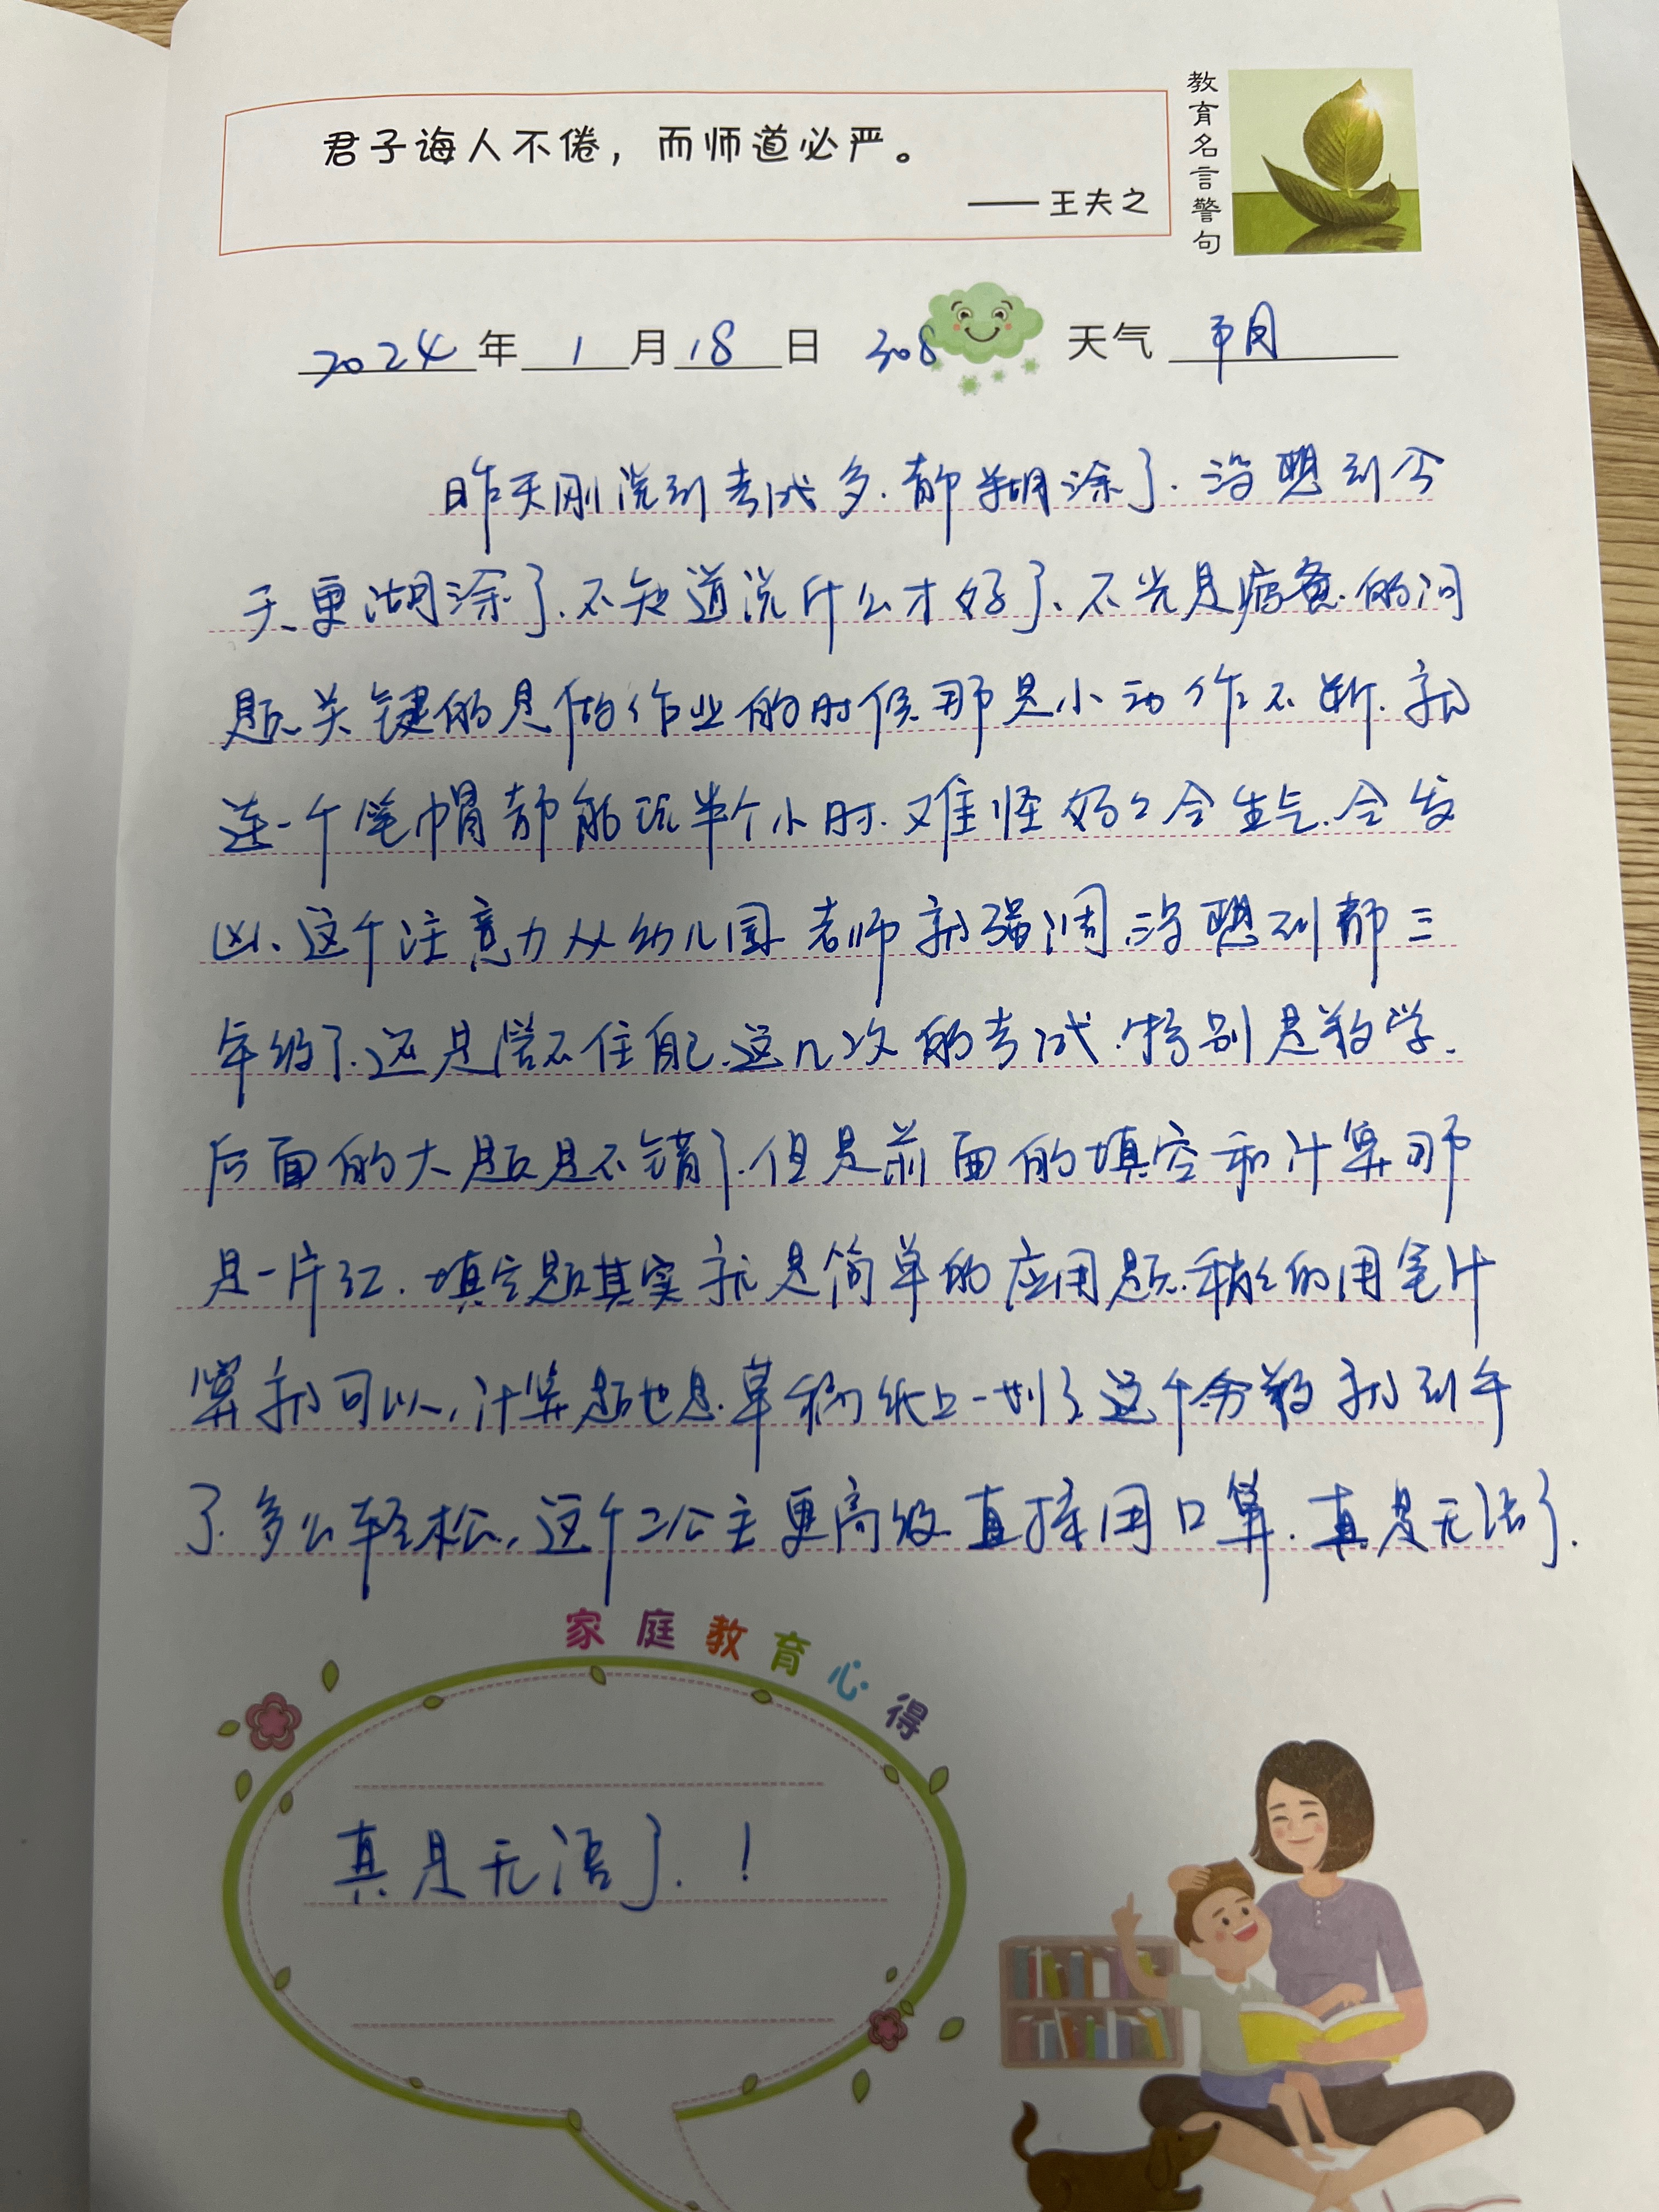 君子诲人不倦，而师道必严。
——王夫之
教育名言警句
2024年1月18日 308 天气 晴
昨天刚说到考试多.都糊涂了.没想到今
天更湖涂了.不知道说什么才好了、不光是的问
题.关键的是做作业的时候.那是小动作不断.就
连一个笔帽都能玩半个小时.难怪妈々会生气.会发
凶、这个注意力从幼儿园老师就强调.没想到都三
年级了.还是管不住自己.这几次的考试.特别是数学.
后面的大题是不错了.但是前面的填空和计算那
是一片红.填空题其实就是简单的应用题.稍的用笔计
算就可以，计算题也是.草稿纸上一划了这个分数就到手
了.多么轻松，这个二公主更高级.直接用口算.真是无语了.
家庭教育心得
真是无语了.！